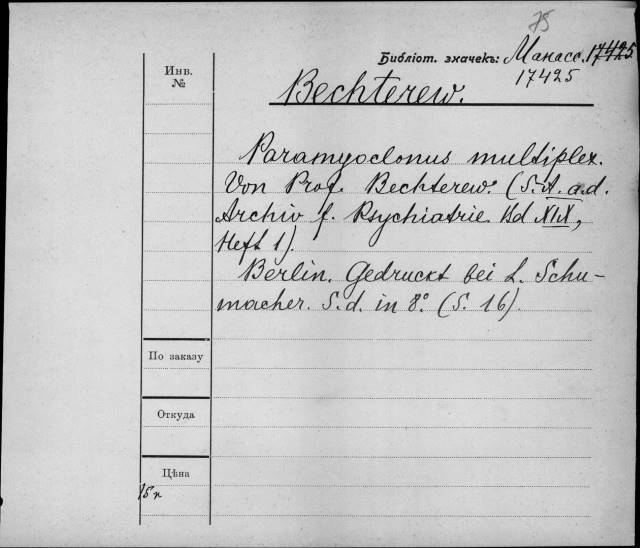 75
Библіот. значекъ: Манасс. 17425
17425
Инв.
№
Bechterew.
Paramyoclonus multiplex.
Von Prof. Bechterew. (S. A. a. d.
Archiv f. Psychiatrie Bd XIX,
Heft 1).
Berlin. Gedruckt bei L. Schu-
macher. S. d. in 8º. (S. 16).
По заказу
Откуда
Цѣна
15 к